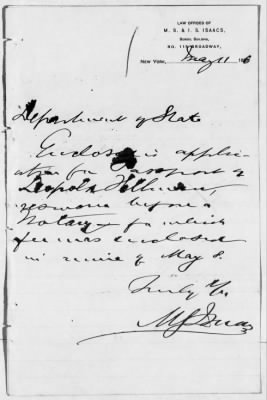 LAW OFFICES OF
M. S. & I. S. ISAACS,
BOREEL BUILDING,
NO. 115 BROADWAY,
NEW YORK, May 11 186
Department of State
Enclosed is applic-
ation for Passport of
Leopold Hellman,
before a
Notary for which
fee was enclosed
in of May 8.
Truly Yrs
M S Isaacs